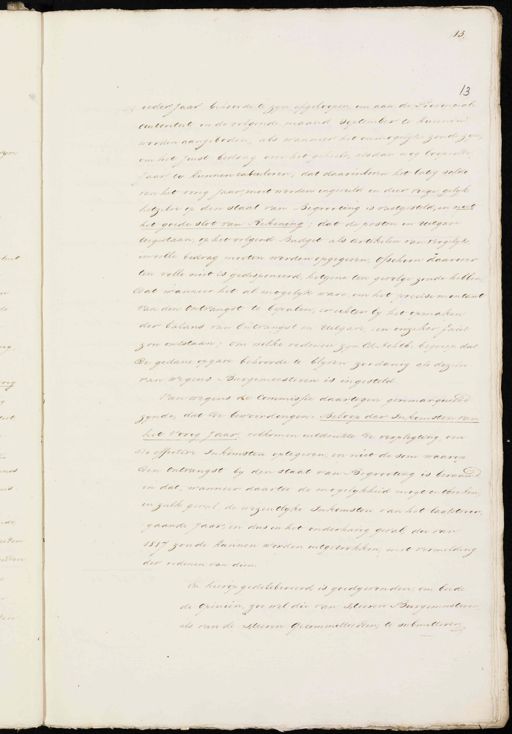 13
13
ieder Jaar behoorde te zijn opgeloopen, en aan de Provinciale
Autoriteit in de volgende maand September te kunnen
worden aangeboden, als wanneer het onmogelijk zoude zijn
om het juist bedrag van het geheele, alsdan nog loopende
Jaar te kunnen calculeren, dat daarenboven het batig saldo
van het vorig Jaar moet worden ingevuld en dus vergelijk
hetgeen op den staat van Begrooting is vastgesteld, en niet
het goede slot van Rekening; dat de posten en uitgaven
op het volgend Budget als artikelen van dergelijke
volle bedrag moeten worden opgegeven, ofschoon daarover
ten volle niet is gedisponeerd, hetgeen ten gevolge zoude hebben,
dat wanneer het al mogelijk ware om het precise montant
van den ontvangst te bepalen, er echter bij het opmaken
der balans van ontvangst en uitgave, een onzeker
zou ontstaan; om welke redenen zij begrepen dat
de gedane opgave behoorde te blijven zoodanig als dezen
van wegens Burgemeesteren is ingesteld.
Van wegens de Commissie daartegen geremarqueerd
zijnde, dat de bewoordingen Beloop der Inkomsten van
het Vorig Jaar, volkomen uitdrukte de verpligting om
de effective Inkomsten optegeven, en niet de som waarop
den ontvangst bij den staat van Begrooting is bepaald
en dat, wanneer daartoe de mogelijkheid mogt ontbreken,
in zulk geval de wezentlijke Inkomsten van het laatstvoor-
gaande Jaar, en dus in het onderhavig geval die van
1817 zoude kunnen worden uitgetrokken, met vermelding
der redenen van dien.
Is hierop gedelibereerd en goedgevonden, om beide
de Opinien, zoo wel die van Heeren Burgemeesteren
als van de Heeren Gecommitteerdens te submitteren